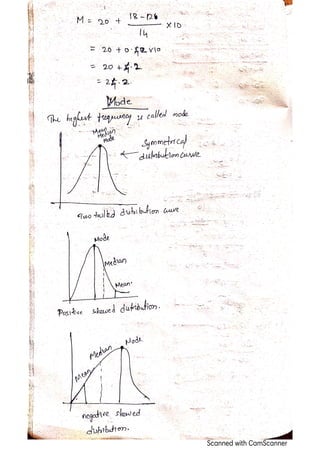 M = 20 + 18 - 12.6 / 14 × 10
= 20 + 0.42 × 10
= 20 + 4.2
= 24.2
Mode
The highest frequency is called mode
Mean
Median
mode
Symmetrical
distribution curve
Two tailed distribution curve
Mode
Median
Mean
Positive skewed distribution.
Mode
Median
Mean
negative skewed
distribution.
Scanned with CamScanner